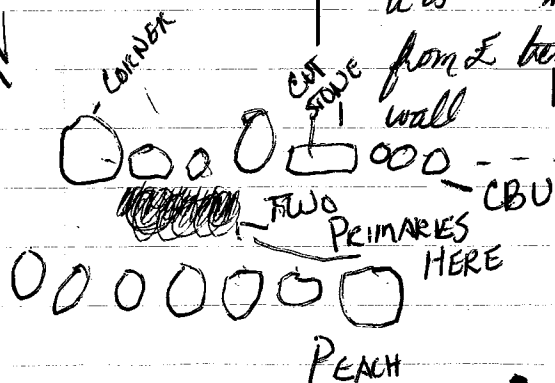 CORNER
CUT
STONE
from E
wall
CBU
TWO
PRIMARIES
HERE
PEACH